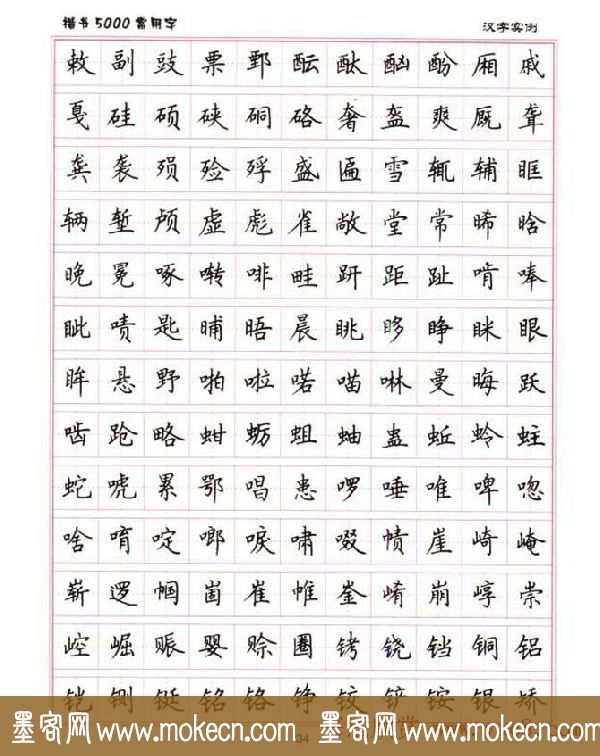 楷书5000常用字 汉字实例
敕副豉票鄄酝酞酗酚厢戚
戛硅硕硖硐硌奢盔爽厩聋
龚袭殒殓殍盛匾雪辄辅眶
辆堑颅虚彪雀敞堂常晞晗
晚冕啄啭啡畦趼距趾啃唪
眦啧匙晡晤晨眺眵睁眯眼
眸悬野啪啦喏喵啉曼晦跃
啮跄略蚶蛎蛆蚰蛊蚯蛉蛀
蛇唬累鄂唱患啰唾唯啤唿
啥唷啶啷唳啸啜帻崖崎崦
崭逻帼崮崔帷崟崤崩崞崇
崆崛赈婴赊圈铐铙铛铜铝
铠铡铤铭铬铮铰铲铵银矫
墨客网www.mokecn.com 墨客网www.mokecn.com